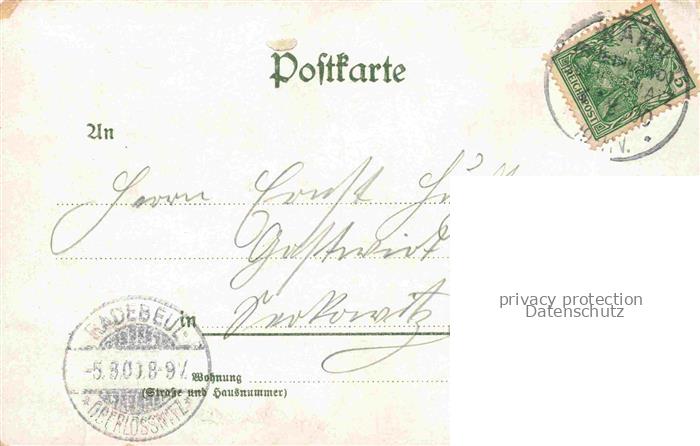 Postkarte
REICHSPOST
5
An
Herrn Ernst
Gastwirt
in Serkowitz
privacy protection
Datenschutz
RADEBEUL-
-5.8.00 8-9V.
*OBERLÖSSNITZ*
Wohnung
(Straße und Hausnummer)